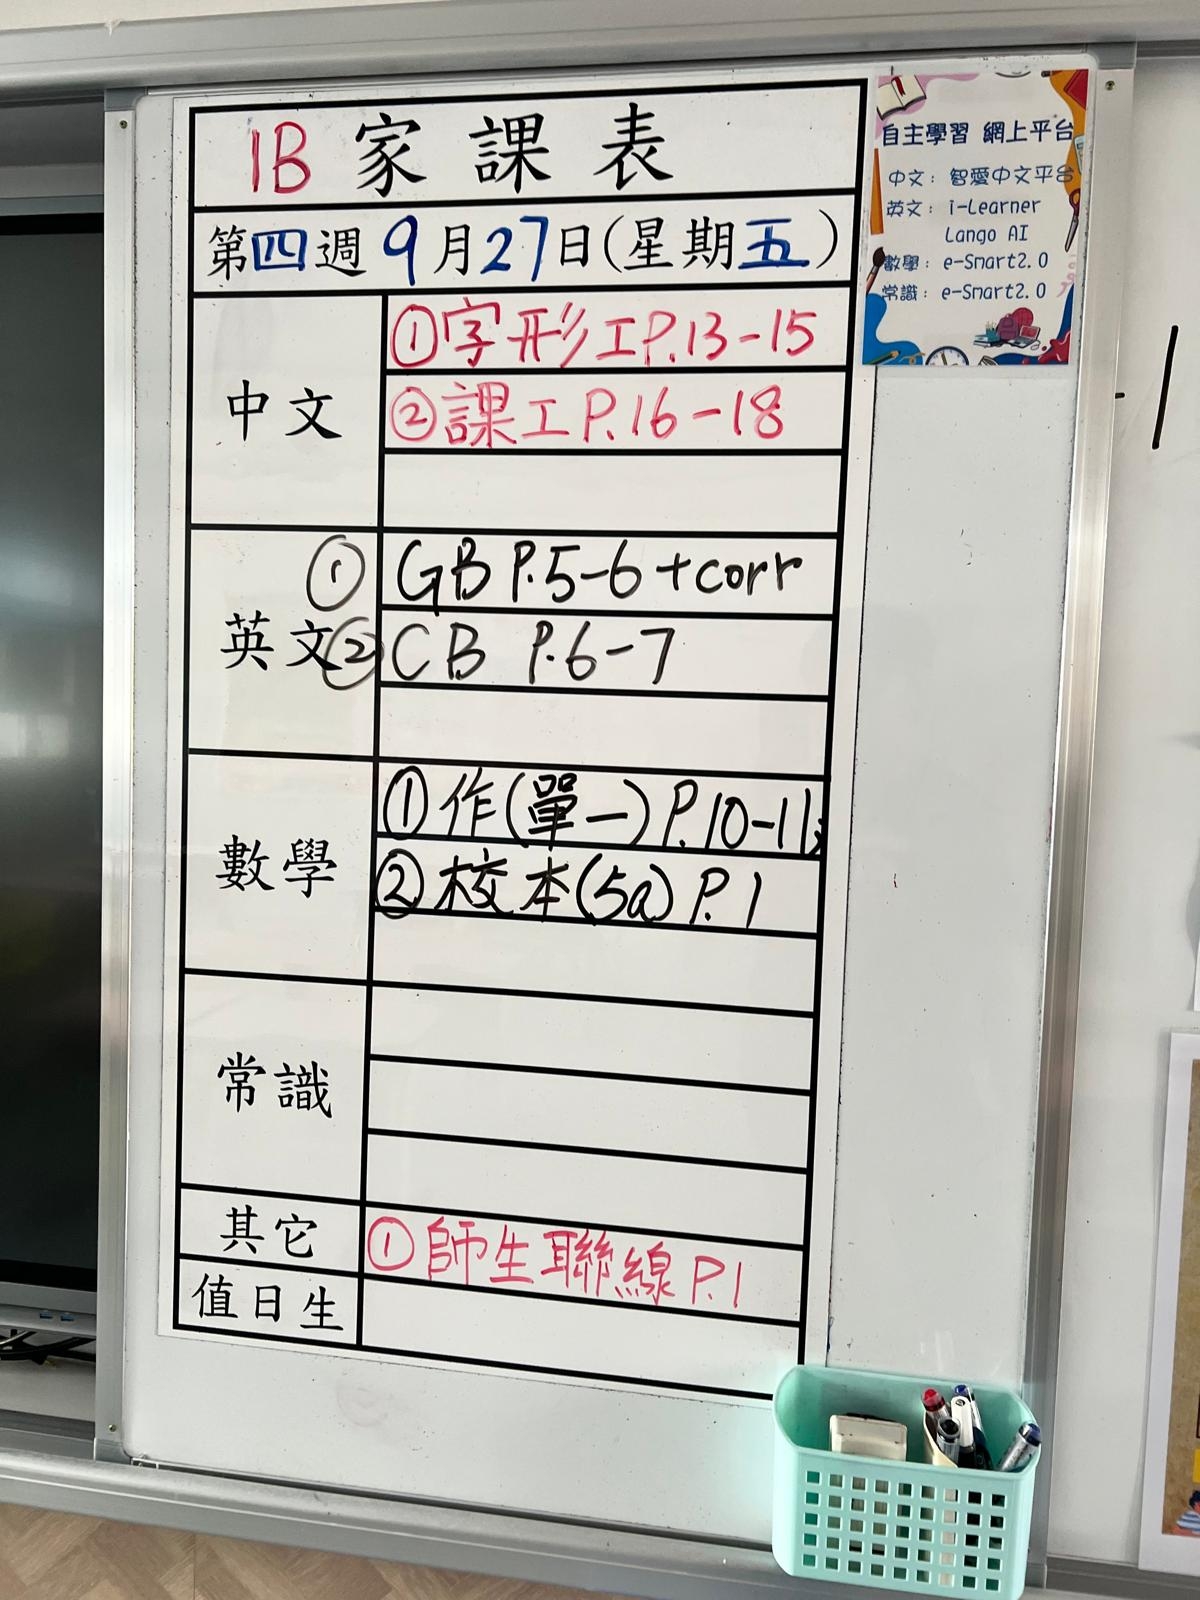 1B 家課表
第四週 9月27日(星期五)
中文
①字形工P.13-15
②課工P.16-18
英文
① GB P.5-6+corr
② CB P.6-7
數學
①作(單一)P.10-11
②校本(5a)P.1
常識
其它
①師生聯線P.1
值日生
自主學習 網上平台
中文：智愛中文平台
英文：i-Learner
Lango AI
數學：e-Smart2.0
常識：e-Smart2.0